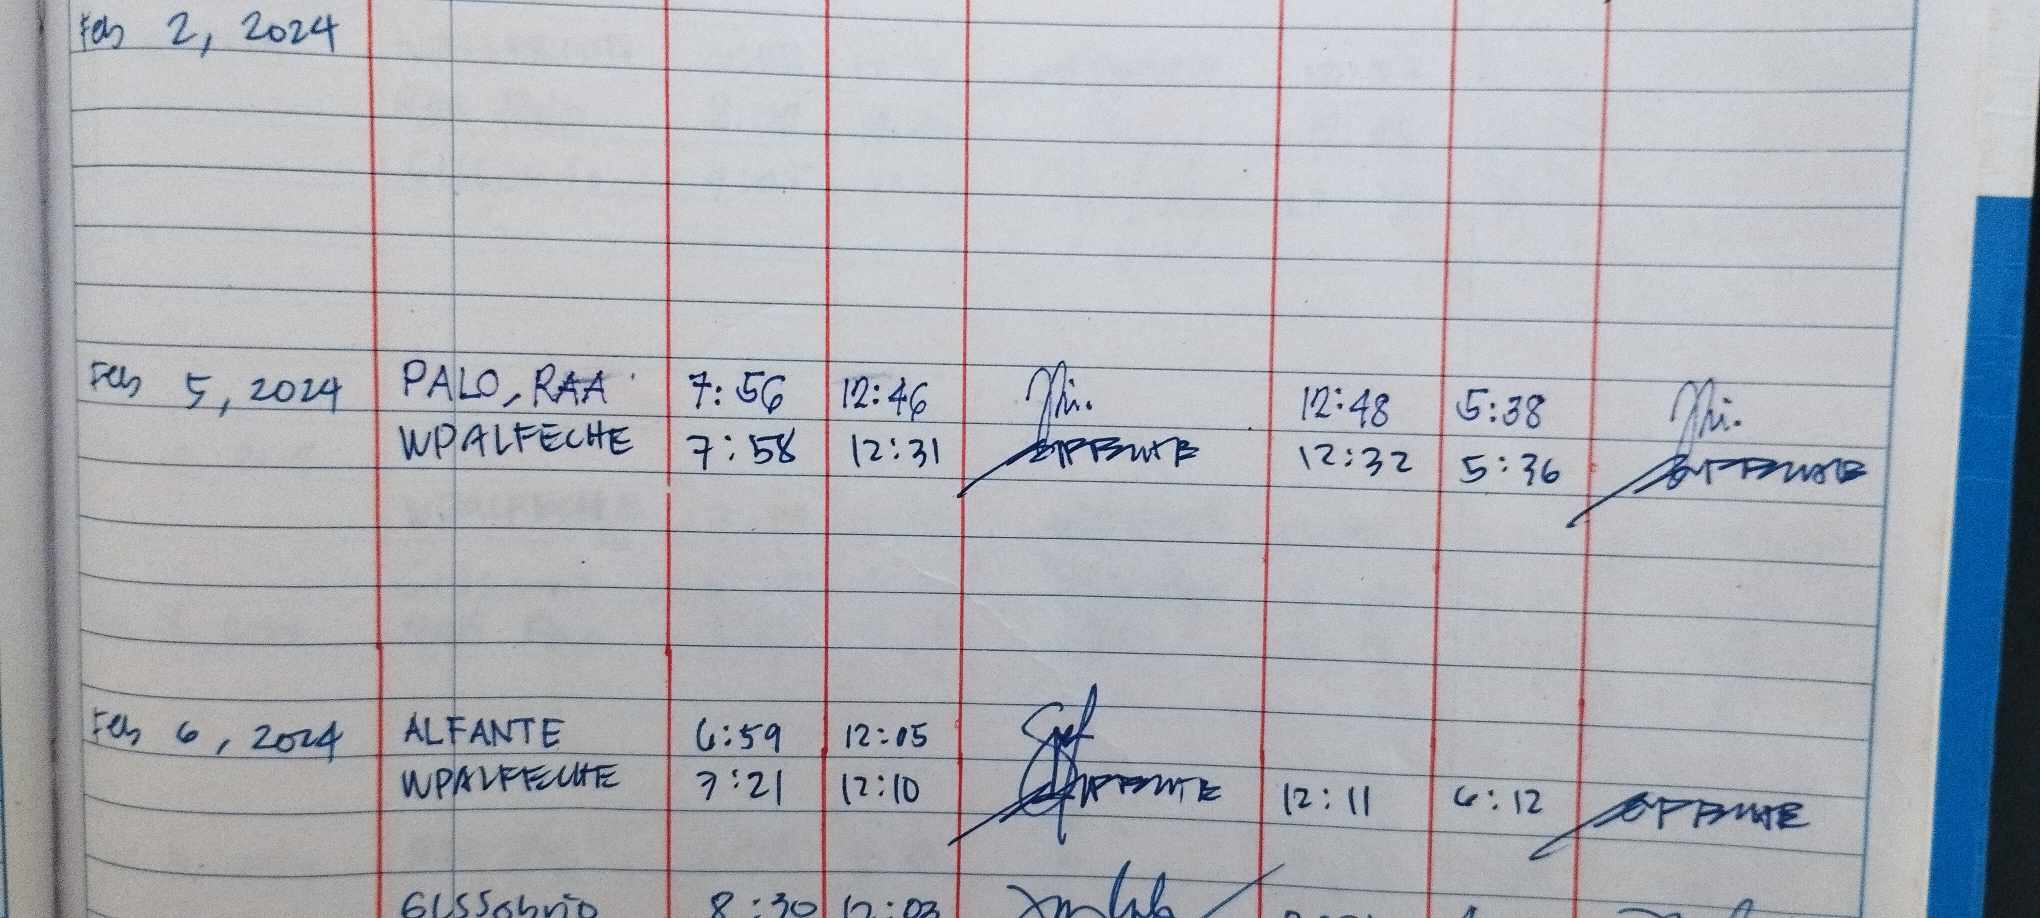 Feb 2, 2024
Feb 5, 2024 PALO, RAA 7:56 12:46 12:48 5:38
WPALFECHE 7:58 12:31 12:32 5:36
Feb 6, 2024 ALFANTE 6:59 12:05
WPALFECHE 7:21 12:10 12:11 6:12
8:30 12:03